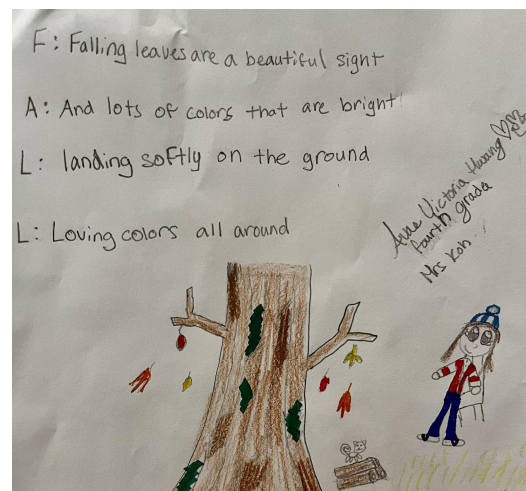 F: Falling leaves are a beautiful sight
A: And lots of colors that are bright!
L: landing softly on the ground
L: Loving colors all around
Victoria Hwang
fourth grade
Mrs Koh